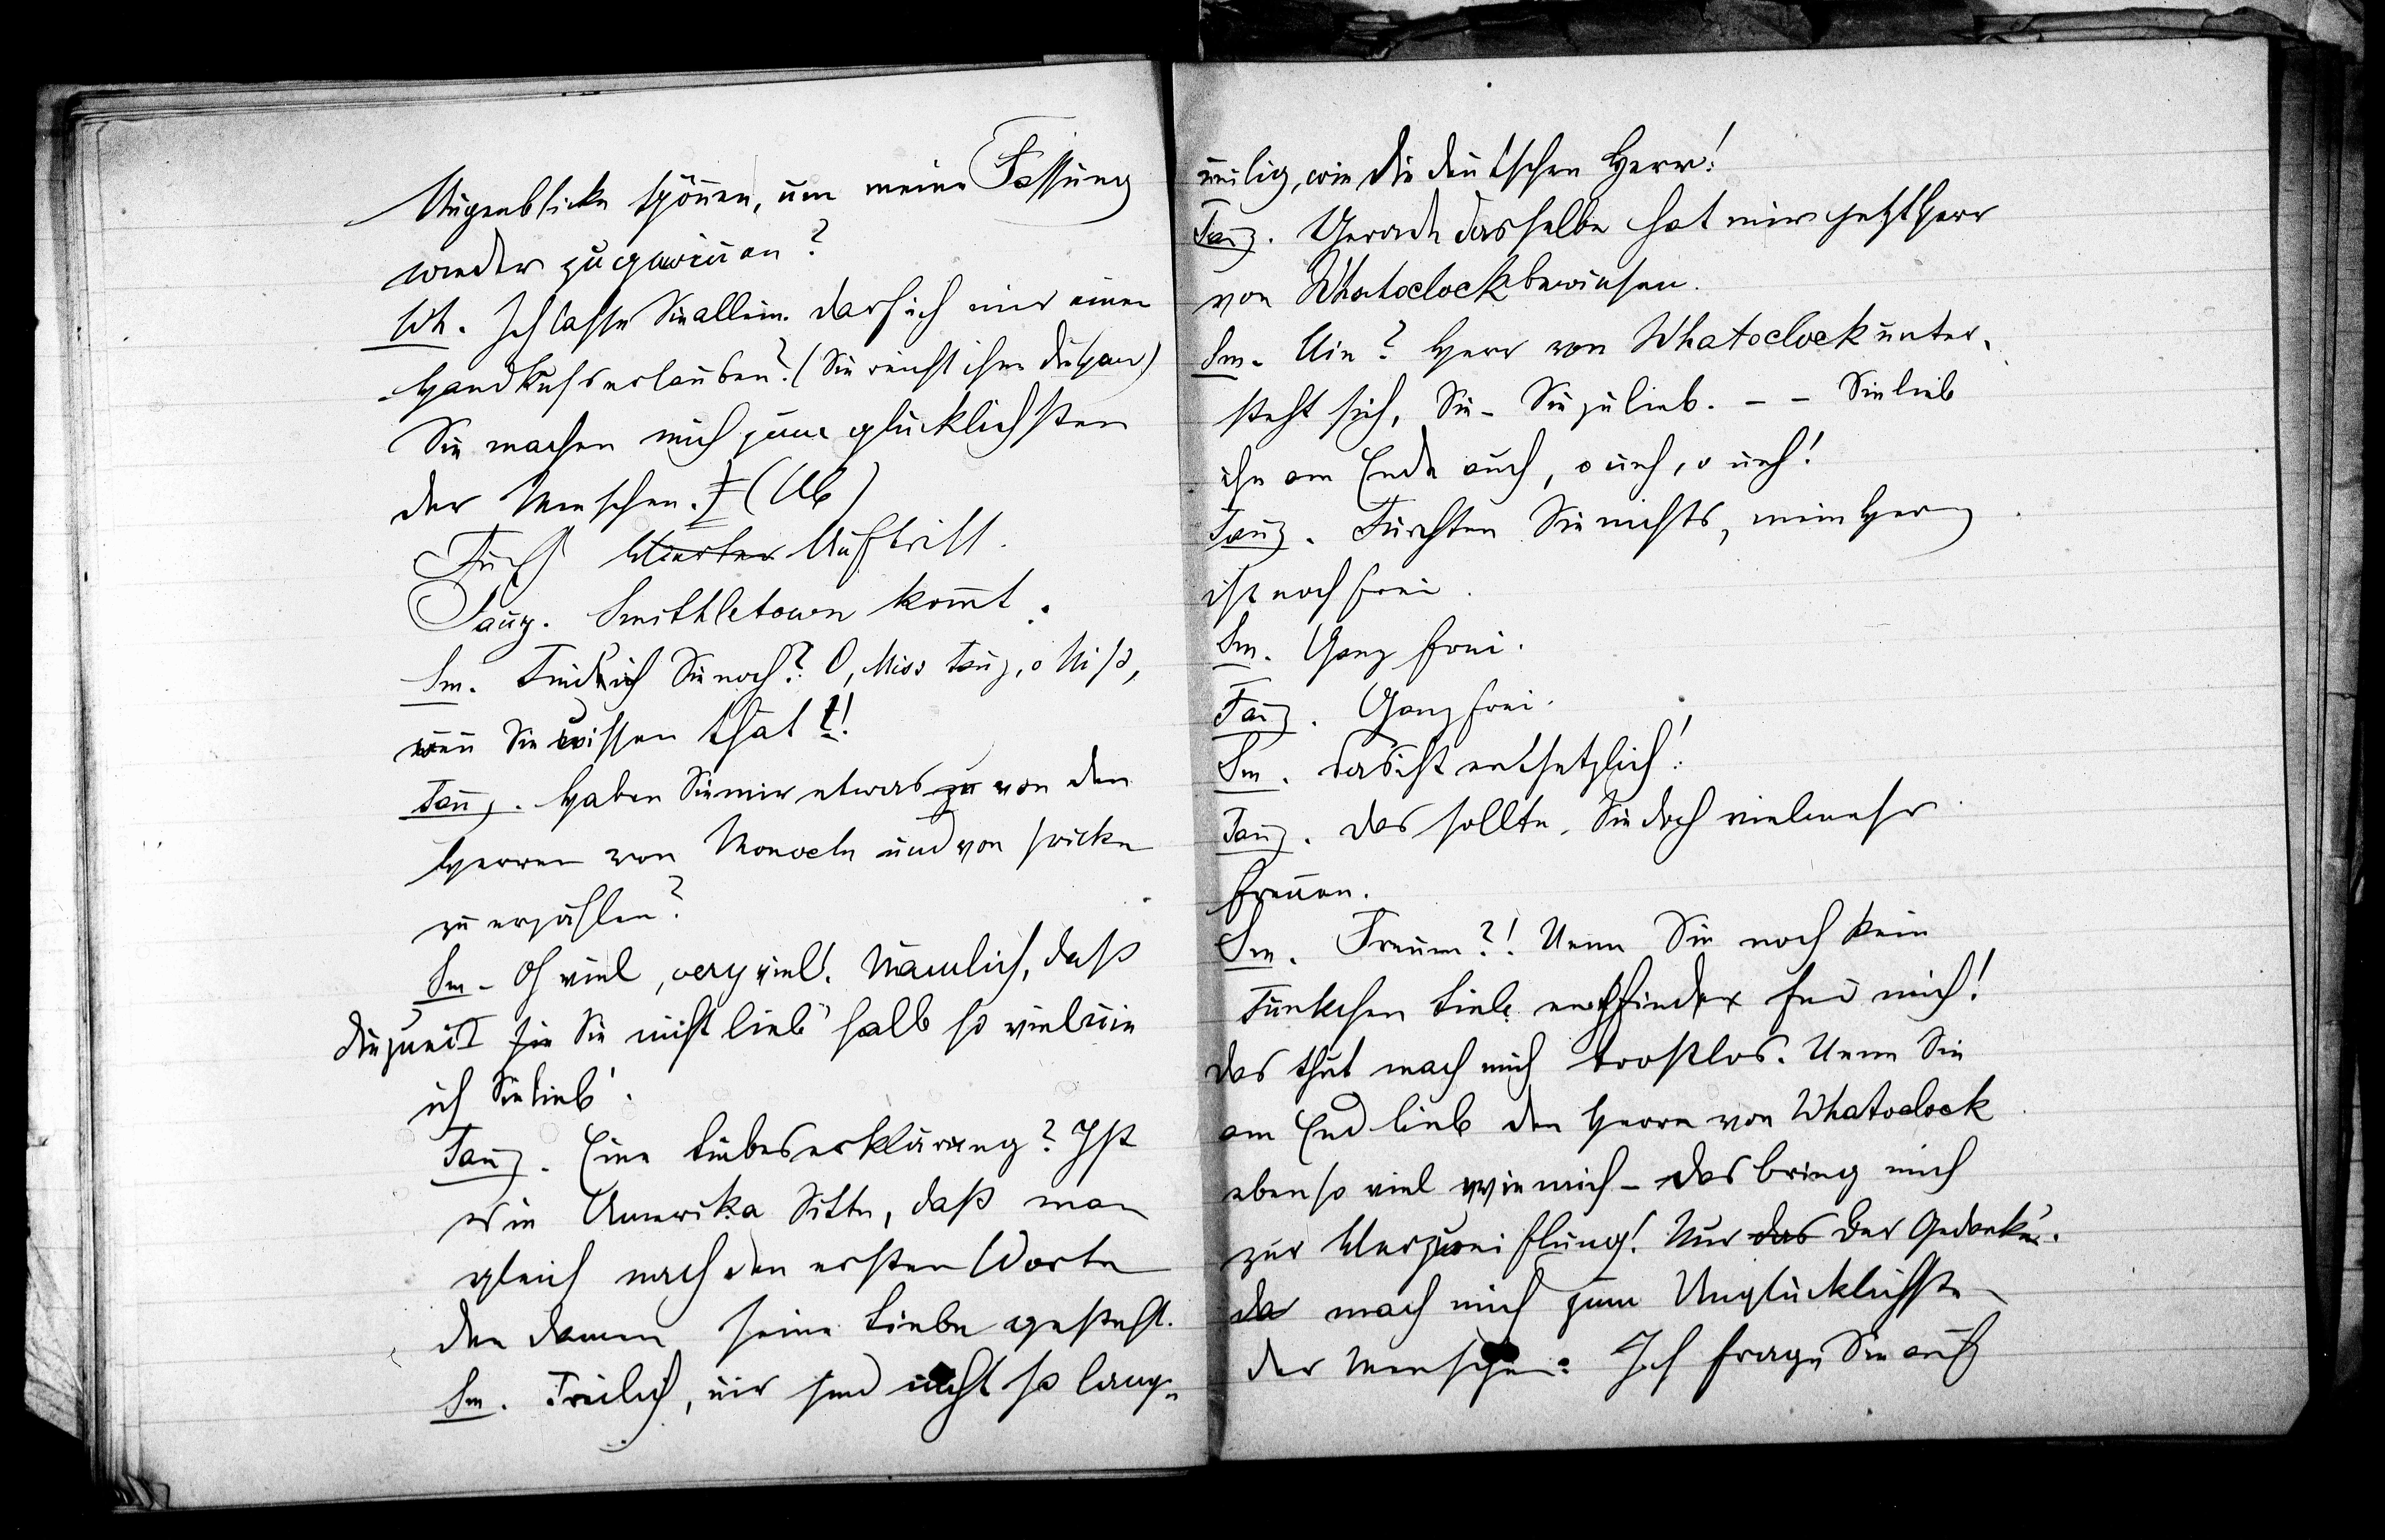 Augenblicke gönnen, um meine Fassung
wieder zu gewinnen?
Wh. Ich lasse Sie allein. Darf ich mir einen
Handkuß erlauben? (Sie reicht ihm die Hand)
Sie machen mich zum glücklichsten
der Menschen. (Ab)
Fünft Vierter Auftritt.
Fanz. Smithletown kommt.
Sm. Find ich Sie noch? O, Miss Fanz, o Miß,
wenn Sie wissen thät!!
Fanz. Haben Sie mir etwas zu von den
Herren von Monocle und von
zu erzählen?
Sm. Oh viel, very viel! Nämlich, daß
die zwei Sie nicht lieb' halb so viel wie
ich Sie lieb'.
Fanz. Eine Liebeserklärung? Ist
es in Amerika Sitte, daß man
gleich nach den ersten Worten
den Damen seine Liebe gesteht.
Sm. Freilich, wir sind nicht so lang-
weilig, wie die deutschen Herrn!
Fanz. Gerade dasselbe hat mir jetzt Herr
von Whatoclock bewiesen.
Sm. Wie? Herr von Whatoclock unter-
steht sich, Sie - Sie zu lieb. - - Sie lieb
ihn am Ende auch, o weh, o weh!
Fanz. Fürchten Sie nichts, mein Herz
ist noch frei.
Sm. Ganz frei.
Fanz. Ganz frei.
Sm. Das ist entsetzlich!
Fanz. Das sollte Sie doch vielmehr
freuen.
Sm. Freuen?! Wenn Sie noch kein
Fünkchen Liebe empfinden für mich!
Das thut mach mich trostlos. Wenn Sie
am End lieb den Herrn von Whatoclock
ebenso viel wie mich - das bring mich
zur Verzweiflung! Nur das der Gedanke.
da mach mich zum Unglücklichsten
der Menschen. Ich frage Sie auf